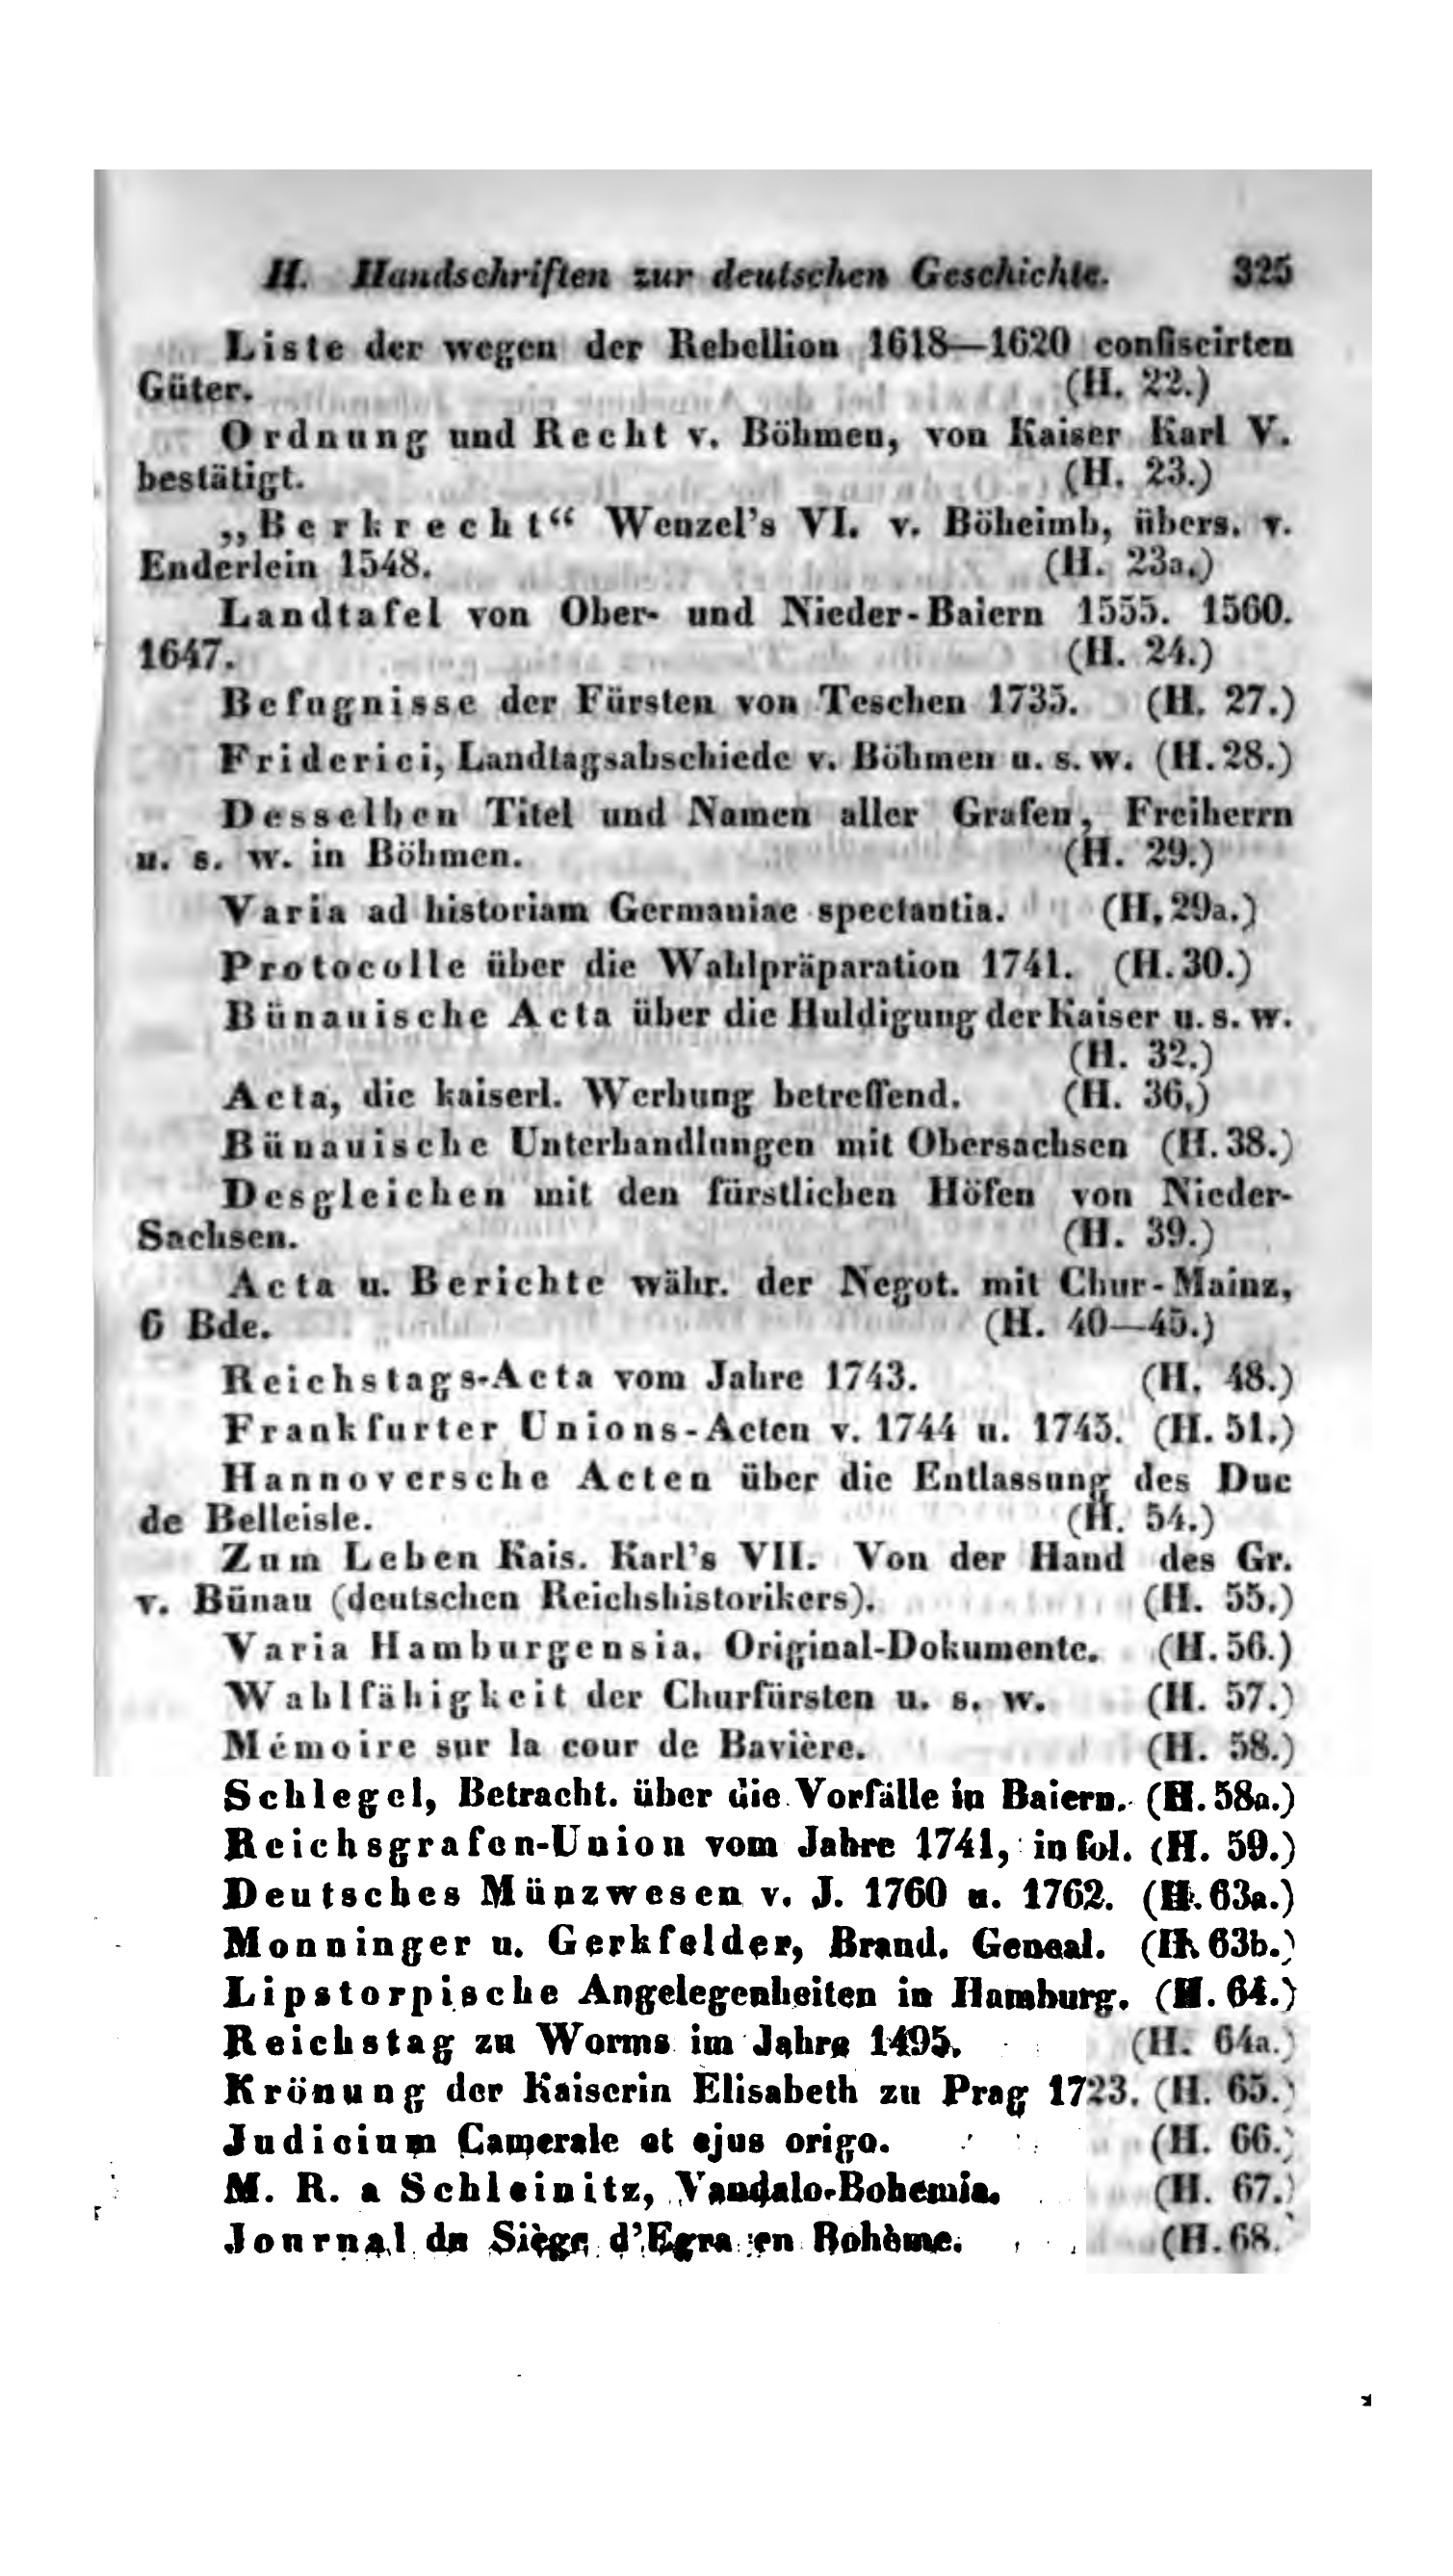 H. Handschriften zur deutschen Geschichte. 325
Liste der wegen der Rebellion 1618—1620 confiscirten
Güter. (H. 22.)
Ordnung und Recht v. Böhmen, von Kaiser Karl V.
bestätigt. (H. 23.)
„Berkrecht“ Wenzel's VI. v. Böheimb, übers. v.
Enderlein 1548. (H. 23a.)
Landtafel von Ober- und Nieder-Baiern 1555. 1560.
1647. (H. 24.)
Befugnisse der Fürsten von Teschen 1735. (H. 27.)
Friderici, Landtagsabschiede v. Böhmen u. s. w. (H. 28.)
Desselben Titel und Namen aller Grafen, Freiherrn
u. s. w. in Böhmen. (H. 29.)
Varia ad historiam Germaniae spectantia. (H. 29a.)
Protocolle über die Wahlpräparation 1741. (H. 30.)
Bünauische Acta über die Huldigung der Kaiser u. s. w.
(H. 32.)
Acta, die kaiserl. Werbung betreffend. (H. 36.)
Bünauische Unterhandlungen mit Obersachsen (H. 38.)
Desgleichen mit den fürstlichen Höfen von Nieder-
Sachsen. (H. 39.)
Acta u. Berichte währ. der Negot. mit Chur-Mainz,
6 Bde. (H. 40—45.)
Reichstags-Acta vom Jahre 1743. (H. 48.)
Frankfurter Unions-Acten v. 1744 u. 1745. (H. 51.)
Hannoversche Acten über die Entlassung des Duc
de Belleisle. (H. 54.)
Zum Leben Kais. Karl's VII. Von der Hand des Gr.
v. Bünau (deutschen Reichshistorikers). (H. 55.)
Varia Hamburgensia. Original-Dokumente. (H. 56.)
Wahlfähigkeit der Churfürsten u. s. w. (H. 57.)
Mémoire sur la cour de Bavière. (H. 58.)
Schlegel, Betracht. über die Vorfälle in Baiern. (H. 58a.)
Reichsgrafen-Union vom Jahre 1741, in fol. (H. 59.)
Deutsches Münzwesen v. J. 1760 u. 1762. (H. 63a.)
Monninger u. Gerkfelder, Brand. Geneal. (H. 63b.)
Lipstorpische Angelegenheiten in Hamburg. (H. 64.)
Reichstag zu Worms im Jahre 1495. (H. 64a.)
Krönung der Kaiserin Elisabeth zu Prag 1723. (H. 65.)
Judicium Camerale et ejus origo. (H. 66.)
M. R. a Schleinitz, Vandalo-Bohemia. (H. 67.)
Journal du Siège d'Egra en Bohème. (H. 68.